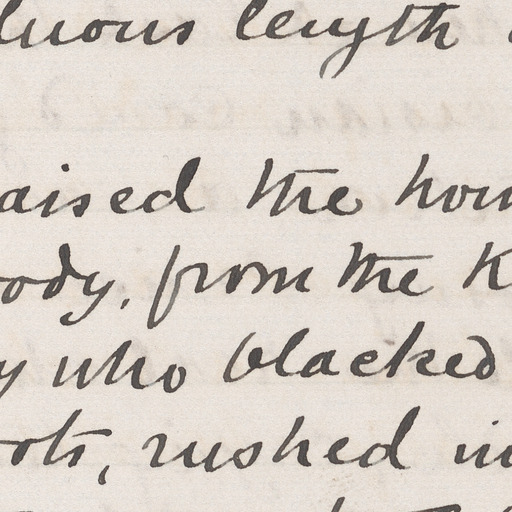 luous length
aised the hou
ody, from the K
y who blacked
ots, rushed in